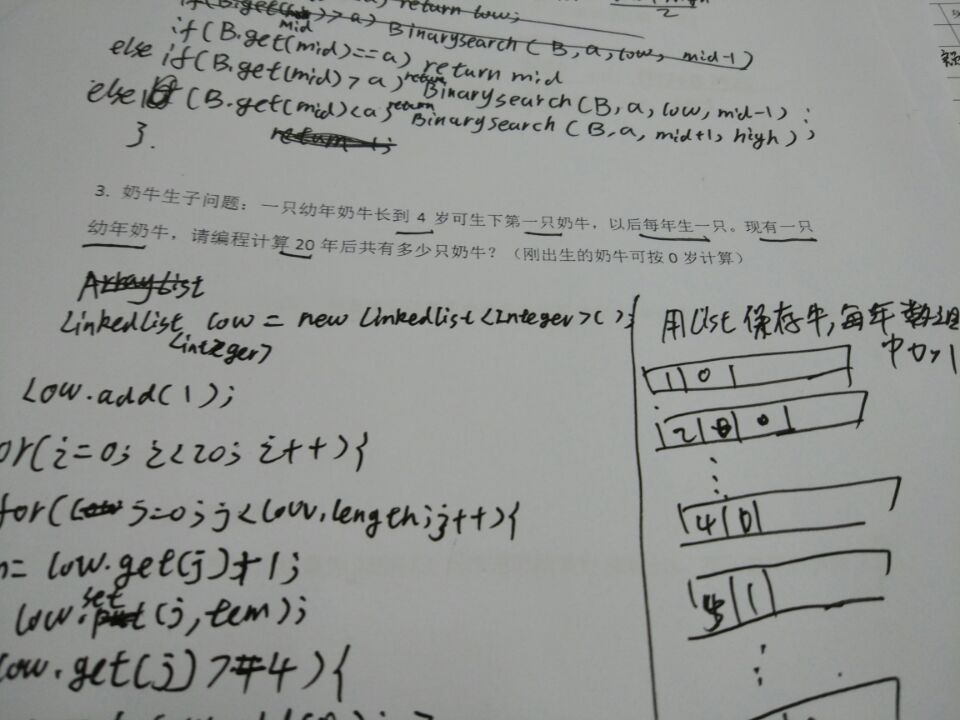 return low;
if(B.get(mid)>a) Binarysearch(B,a,low, mid-1)
if(B.get(mid)==a) return mid
else if(B.get(mid)>a) return Binarysearch(B,a,low,mid-1);
else if(B.get(mid)<a) return Binarysearch(B,a,mid+1,high);
}.
3. 奶牛生子问题：一只幼年奶牛长到 4 岁可生下第一只奶牛，以后每年生一只。现有一只
幼年奶牛，请编程计算 20 年后共有多少只奶牛？（刚出生的奶牛可按 0 岁计算）
ArrayList
LinkedList<Integer> cow = new LinkedList<Integer>();
cow.add(1);
or(i=0; i<20; i++){
for(j=0;j<cow.length;j++){
= cow.get(j)+1;
cow.set(j,tem);
cow.get(j)>4){
用list保存牛,每年
中加1
1 0
2 0 0
4 0
1